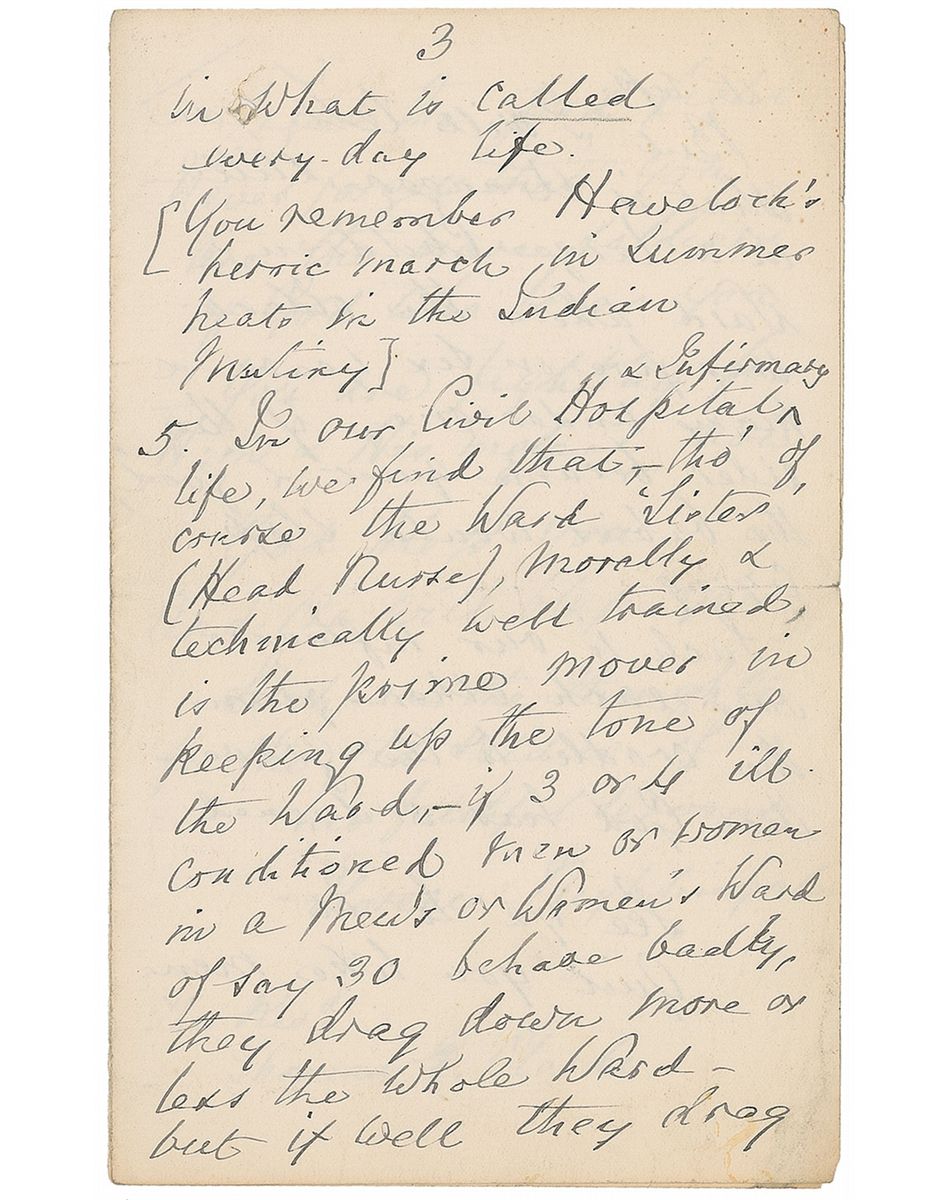 3
in what is called
every-day life.
[You remember Havelock's
heroic march in Summer
heats in the Indian
Mutiny]
& Infirmary
5. In our Civil Hospital ^
life, we find that, – tho' of
course the Ward 'Sister'
(Head Nurse), morally &
technically well trained,
is the prime mover in
keeping up the tone of
the Ward, – if 3 or 4 ill
conditioned men or women
in a Men's or Women's Ward
of say 30 behave badly,
they drag down more or
less the whole Ward –
but if well they drag